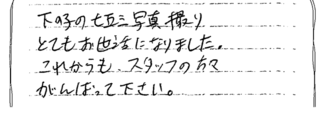 下の子の七五三写真撮り
とてもお世話になりました。
これからも、スタッフの方々
がんばって下さい。